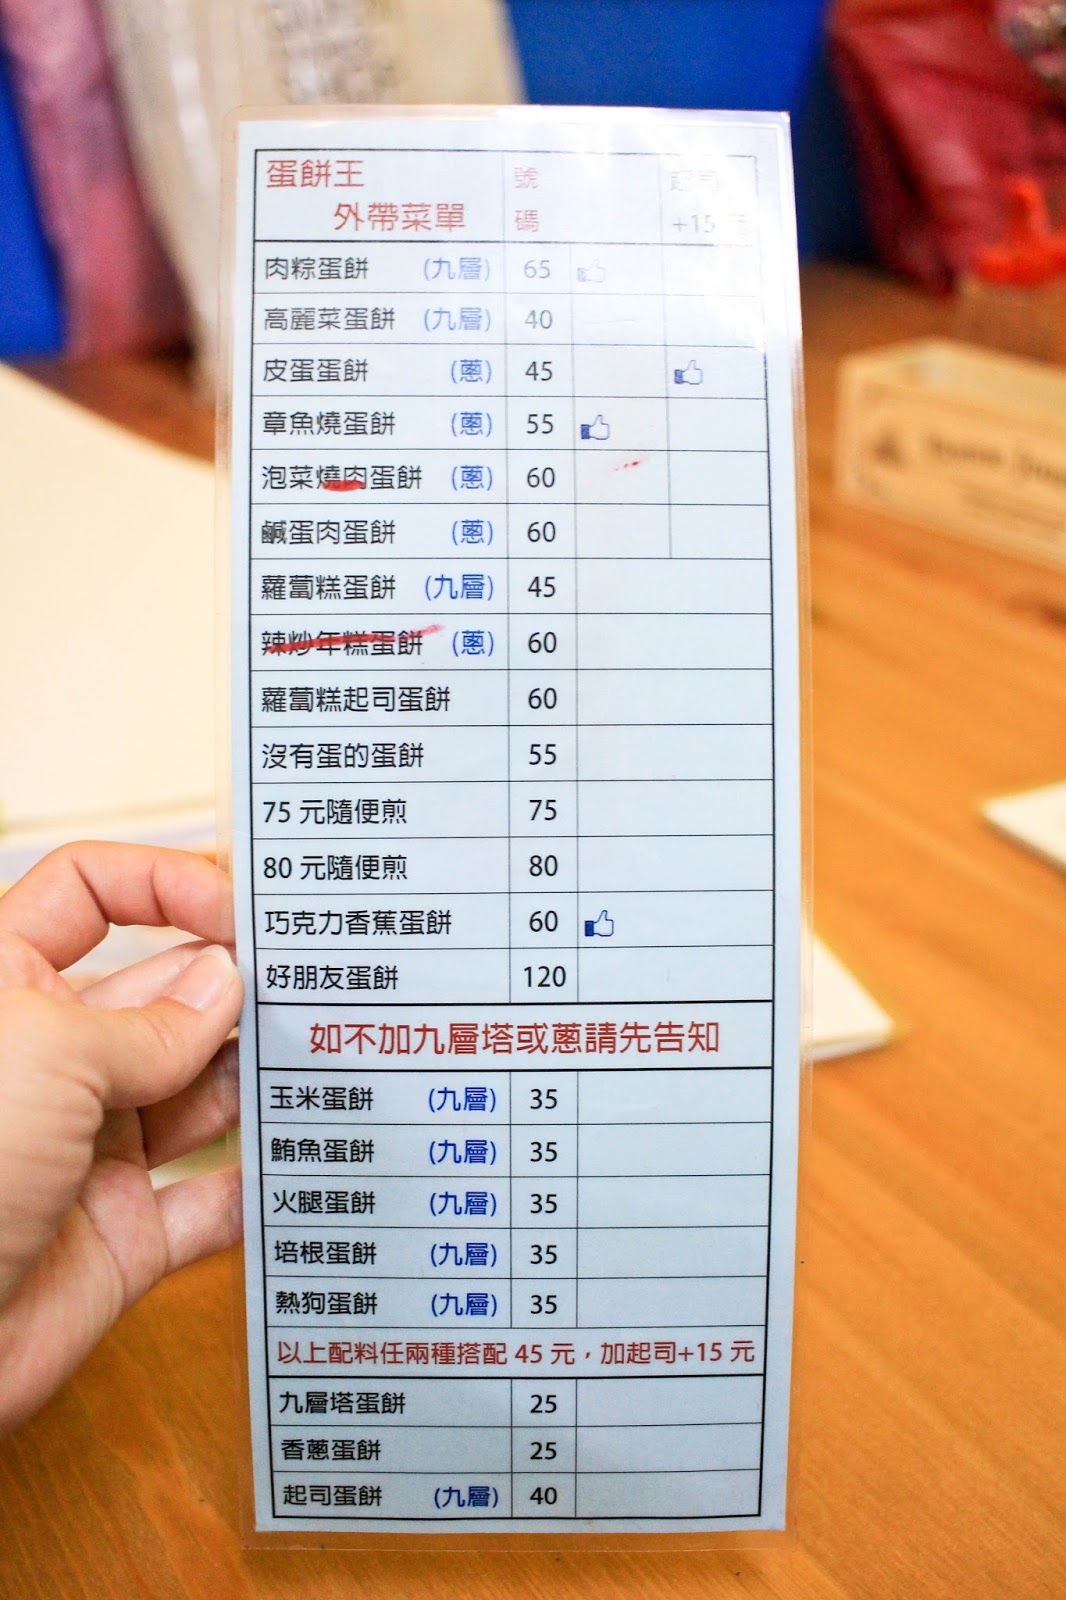 蛋餅王 號 起司
外帶菜單 碼 +15 元
肉粽蛋餅 (九層) 65
高麗菜蛋餅 (九層) 40
皮蛋蛋餅 (蔥) 45
章魚燒蛋餅 (蔥) 55
泡菜燒肉蛋餅 (蔥) 60
鹹蛋肉蛋餅 (蔥) 60
蘿蔔糕蛋餅 (九層) 45
辣炒年糕蛋餅 (蔥) 60
蘿蔔糕起司蛋餅 60
沒有蛋的蛋餅 55
75 元隨便煎 75
80 元隨便煎 80
巧克力香蕉蛋餅 60
好朋友蛋餅 120
如不加九層塔或蔥請先告知
玉米蛋餅 (九層) 35
鮪魚蛋餅 (九層) 35
火腿蛋餅 (九層) 35
培根蛋餅 (九層) 35
熱狗蛋餅 (九層) 35
以上配料任兩種搭配 45 元，加起司+15 元
九層塔蛋餅 25
香蔥蛋餅 25
起司蛋餅 (九層) 40